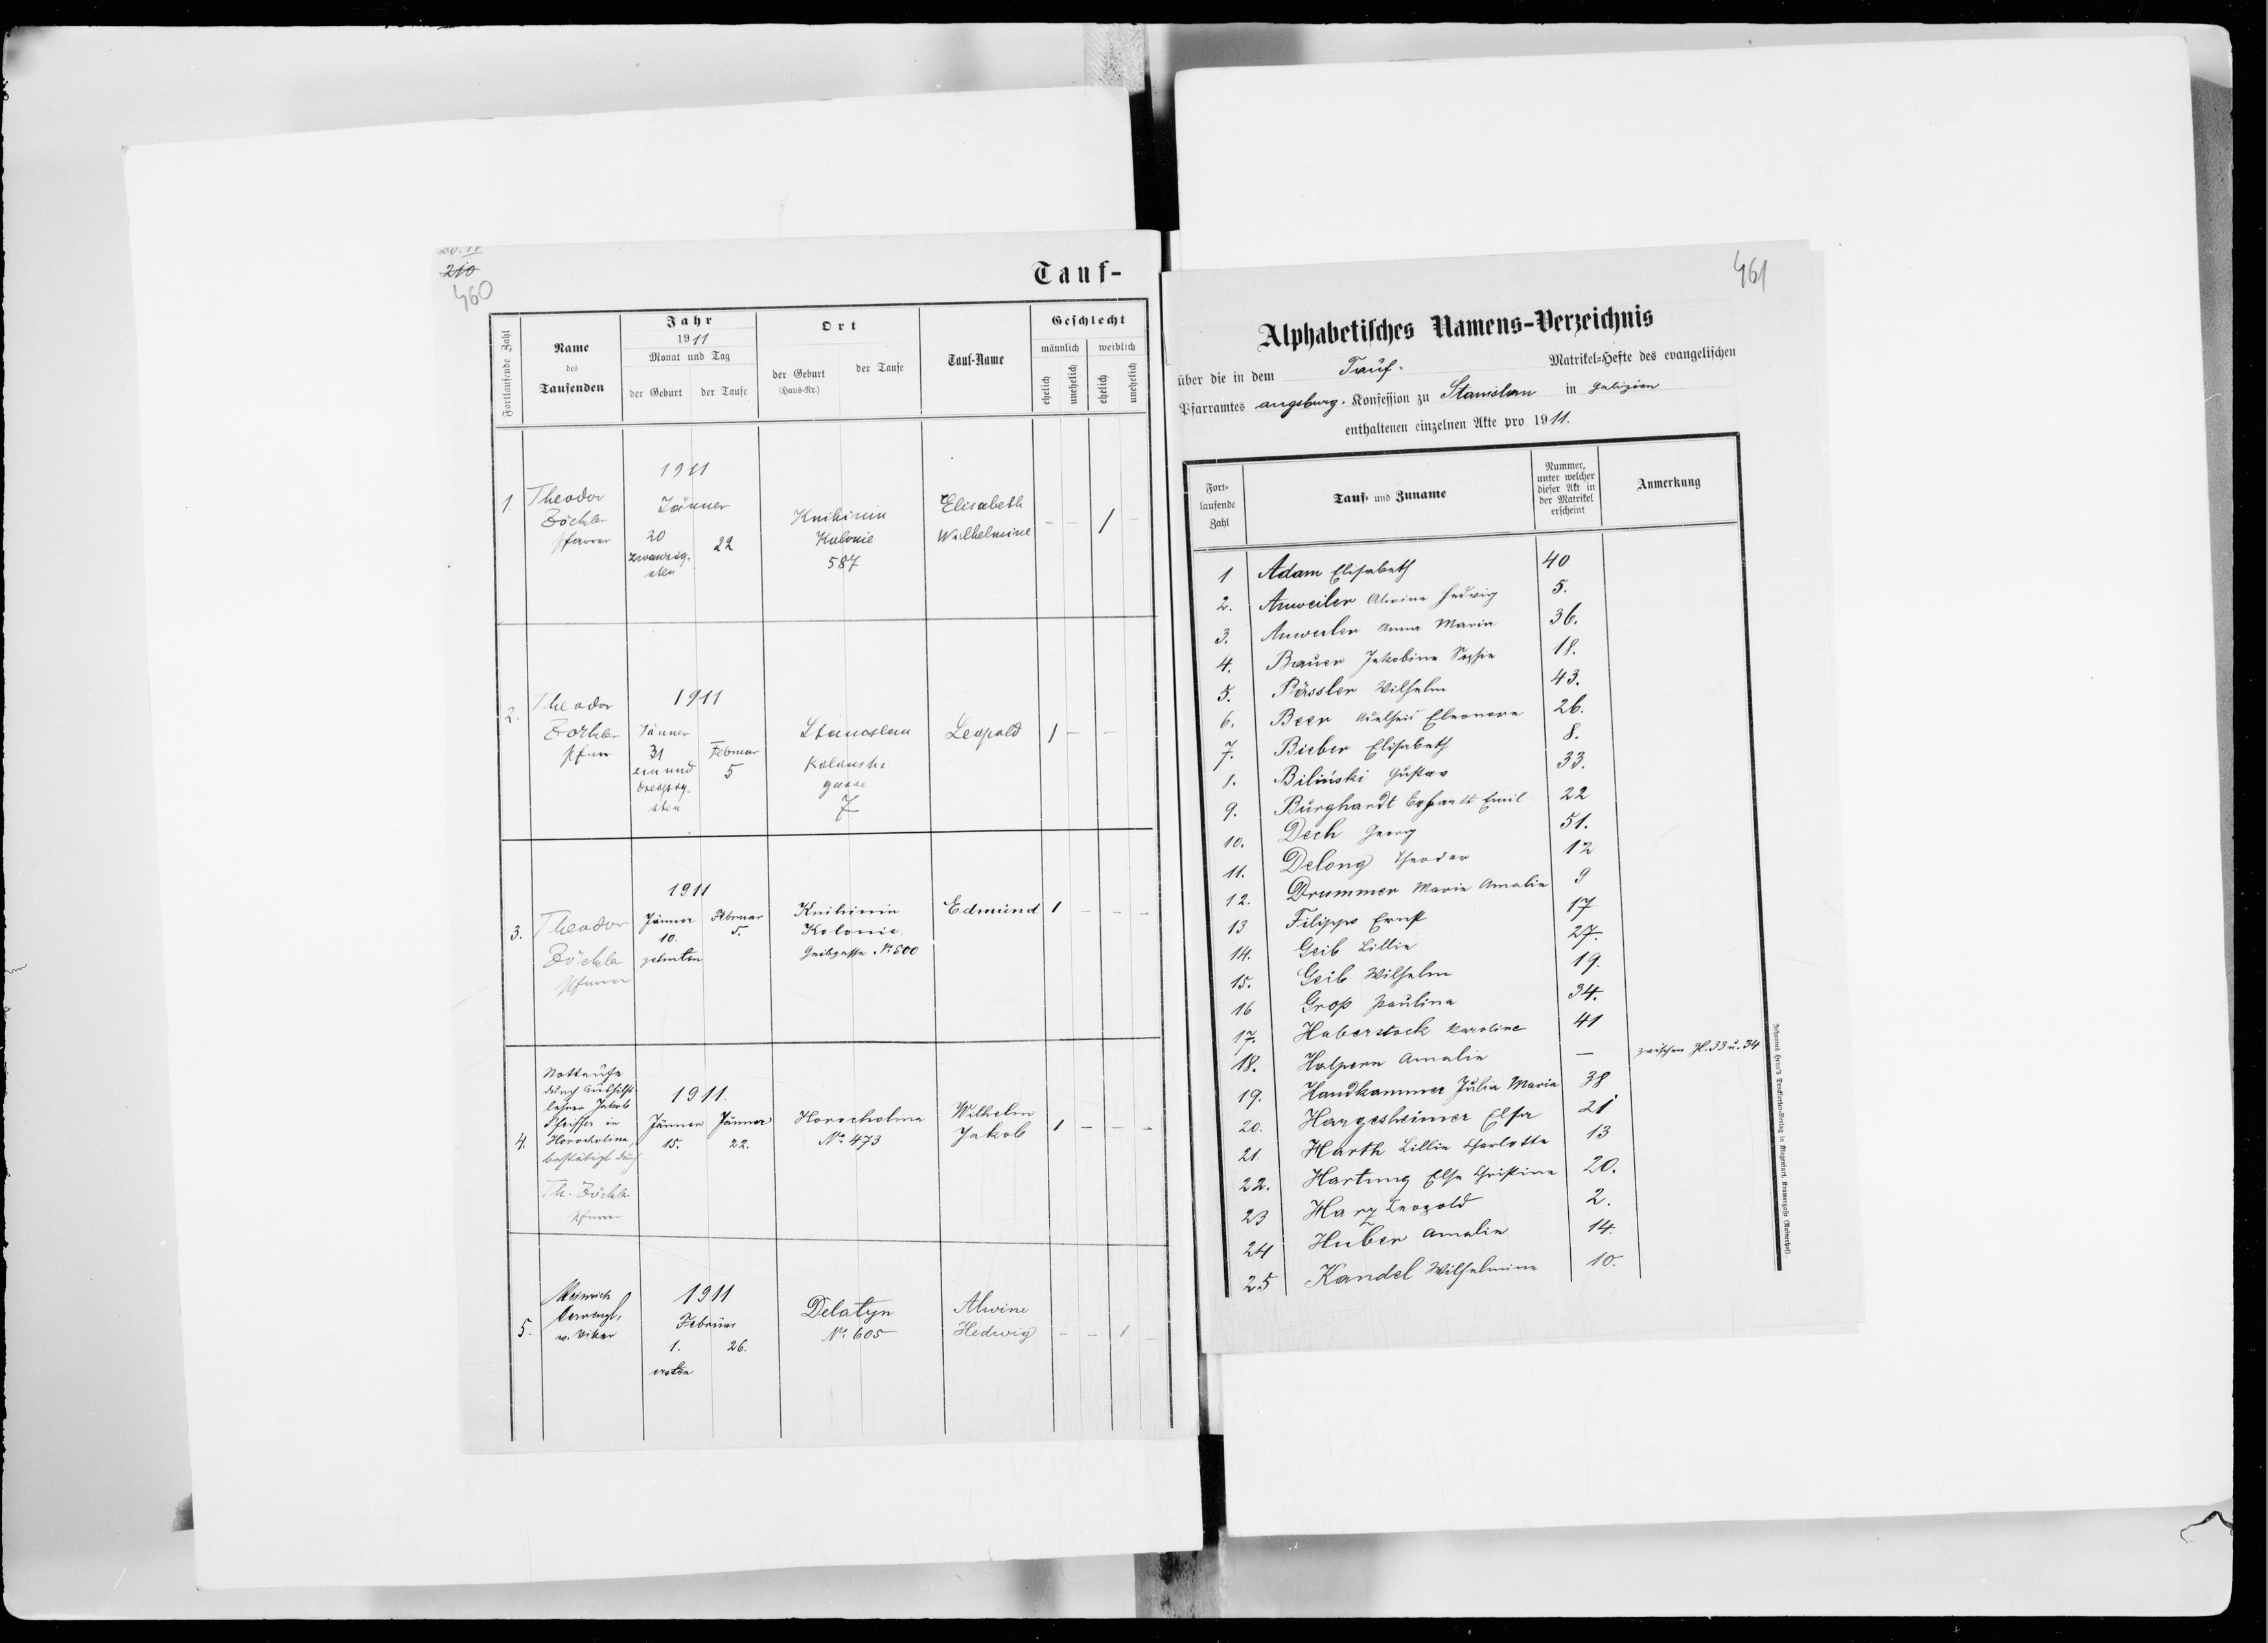 210
460
Tauf-
Fortlaufende Zahl
Name
des
Taufenden
Jahr
1911
Monat und Tag
der Geburt
der Taufe
Ort
der Geburt
(Haus-Nr.)
der Taufe
Tauf-Name
Geschlecht
männlich
weiblich
ehelich
unehelich
ehelich
unehelich
1.
Theodor
Zöckler
Pfarrer
1911
Jänner
20
zwanzig-
sten
22
Knihinin
Kolonie
587
Elisabeth
Wilhelmine
– – 1 –
2.
Theodor
Zöckler
Pfarrer
1911
Jänner
31
ein und
dreißig-
sten
Februar
5
Stanislau
gasse
7
Leopold
1 – –
3.
Theodor
Zöckler
Pfarrer
1911
Jänner
10.
zehnten
Februar
5.
Knihinin
Kolonie
Nr. 500
Edmund
1 – – –
4.
Nottaufe
durch Aushilfs-
lehrer Jakob
Pfeiffer in
Horocholina,
bestätigt durch
Th. Zöckler
Pfarrer
1911.
Jänner
15.
Jänner
22.
Horocholina
No. 473
Wilhelm
Jakob
1 – – –
5.
Heinrich
Vikar
1911
Februar
1.
ersten
26.
Delatyn
No. 605
Alwine
Hedwig
– – 1 –
461
Alphabetisches Namens-Verzeichnis
über die in dem Tauf- Matrikel-Hefte des evangelischen
Pfarramtes augsburg. Konfession zu Stanislau in Galizien
enthaltenen einzelnen Akte pro 1911.
Fort-
laufende
Zahl
Tauf- und Zuname
Nummer,
unter welcher
dieser Akt in
der Matrikel
erscheint
Anmerkung
1 Adam Elisabeth 40
2. Anweiler Alwine Hedwig 5.
3. Anweiler Anna Maria 36.
4. Brauer Jakobine Sophie 18.
5. Bässler Wilhelm 43.
6. Beer Adelheid Eleonore 26.
7. Bieber Elisabeth 8.
8. Biliński Gustav 33.
9. Burghardt Erhardt Emil 22
10. Dech Georg 51.
11. Delong Theodor 12
12. Drummer Marie Amalie 9
13 Filipps Ernst 17
14. Geib Lillie 27.
15. Geib Wilhelm 19.
16 Groß Paulina 34.
17. Haberstock Karoline 41
18. Halpern Amalie — zwischen Zl. 33 u. 34
19. Handkammer Julia Maria 38
20. Hargesheimer Elsa 21
21 Harth Lillie Charlotte 13
22. Hartung Else Christine 20.
23 Harz Leopold 2.
24 Huber Amalie 14.
25 Kandel Wilhelmine 10.